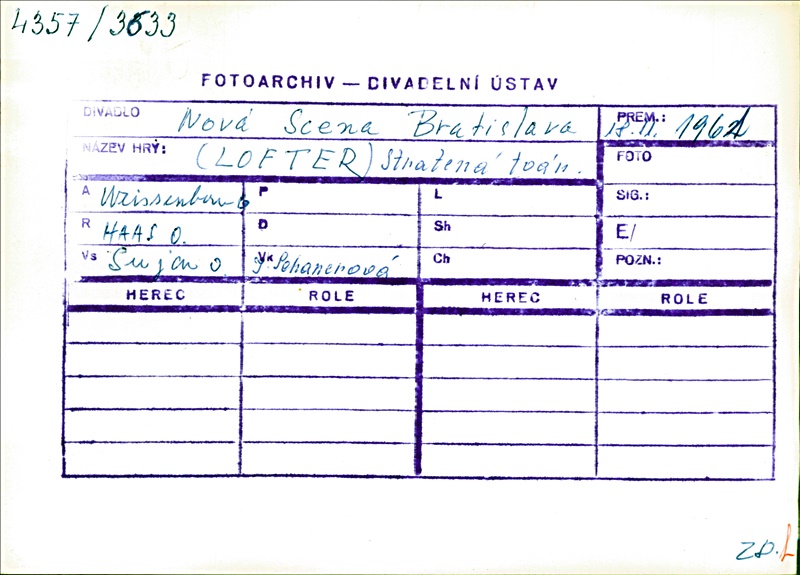 4357/3533
FOTOARCHIV — DIVADELNÍ ÚSTAV
DIVADLO Nová Scena Bratislava PREM.: 1962
NÁZEV HRÝ: (LOFTER) Stratená tvár. FOTO
A Weissenborn G P L SIG.:
R HAAS O. D Sh E/
Vs Šujan O. Vk Ch POZN.:
HEREC ROLE HEREC ROLE
ZD. L